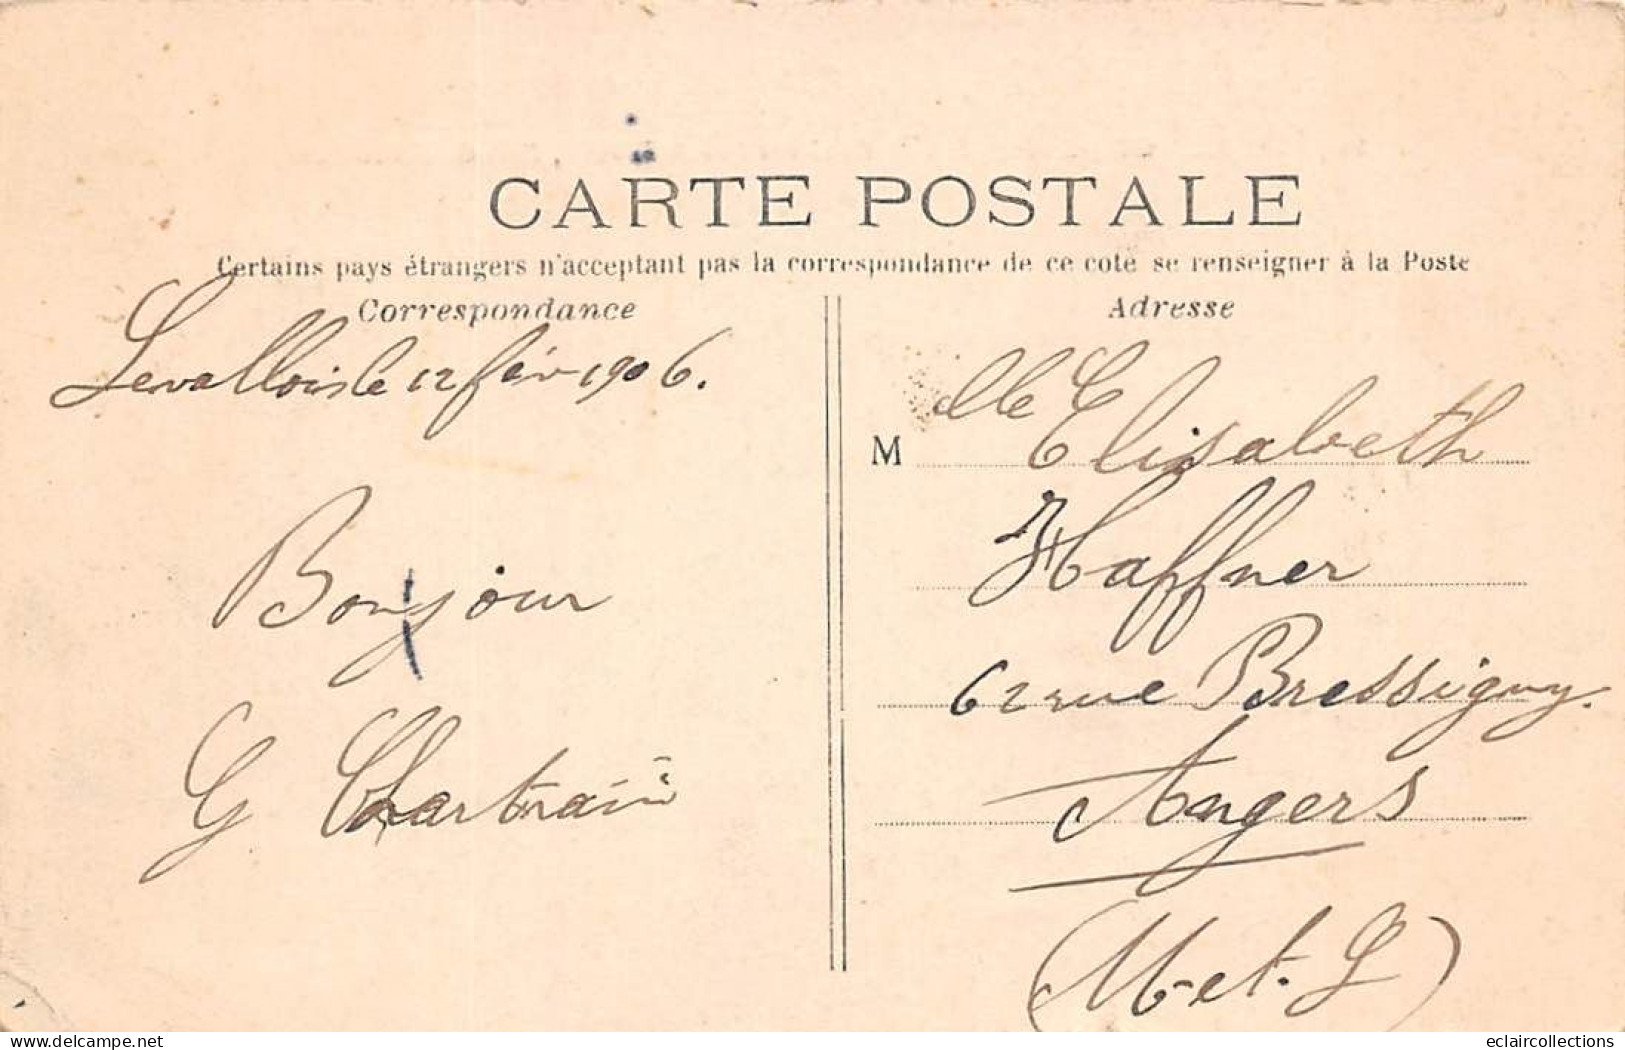 CARTE POSTALE
Certains pays étrangers n'acceptant pas la correspondance de ce coté se renseigner à la Poste
Correspondance
Levallois le 12 fév 1906.
Bonjour
G Chartrain
Adresse
M lle Elisabeth
Haffner
62 rue Bressigny.
Angers
(M-et-L)
delcampe.net
eclaircollections